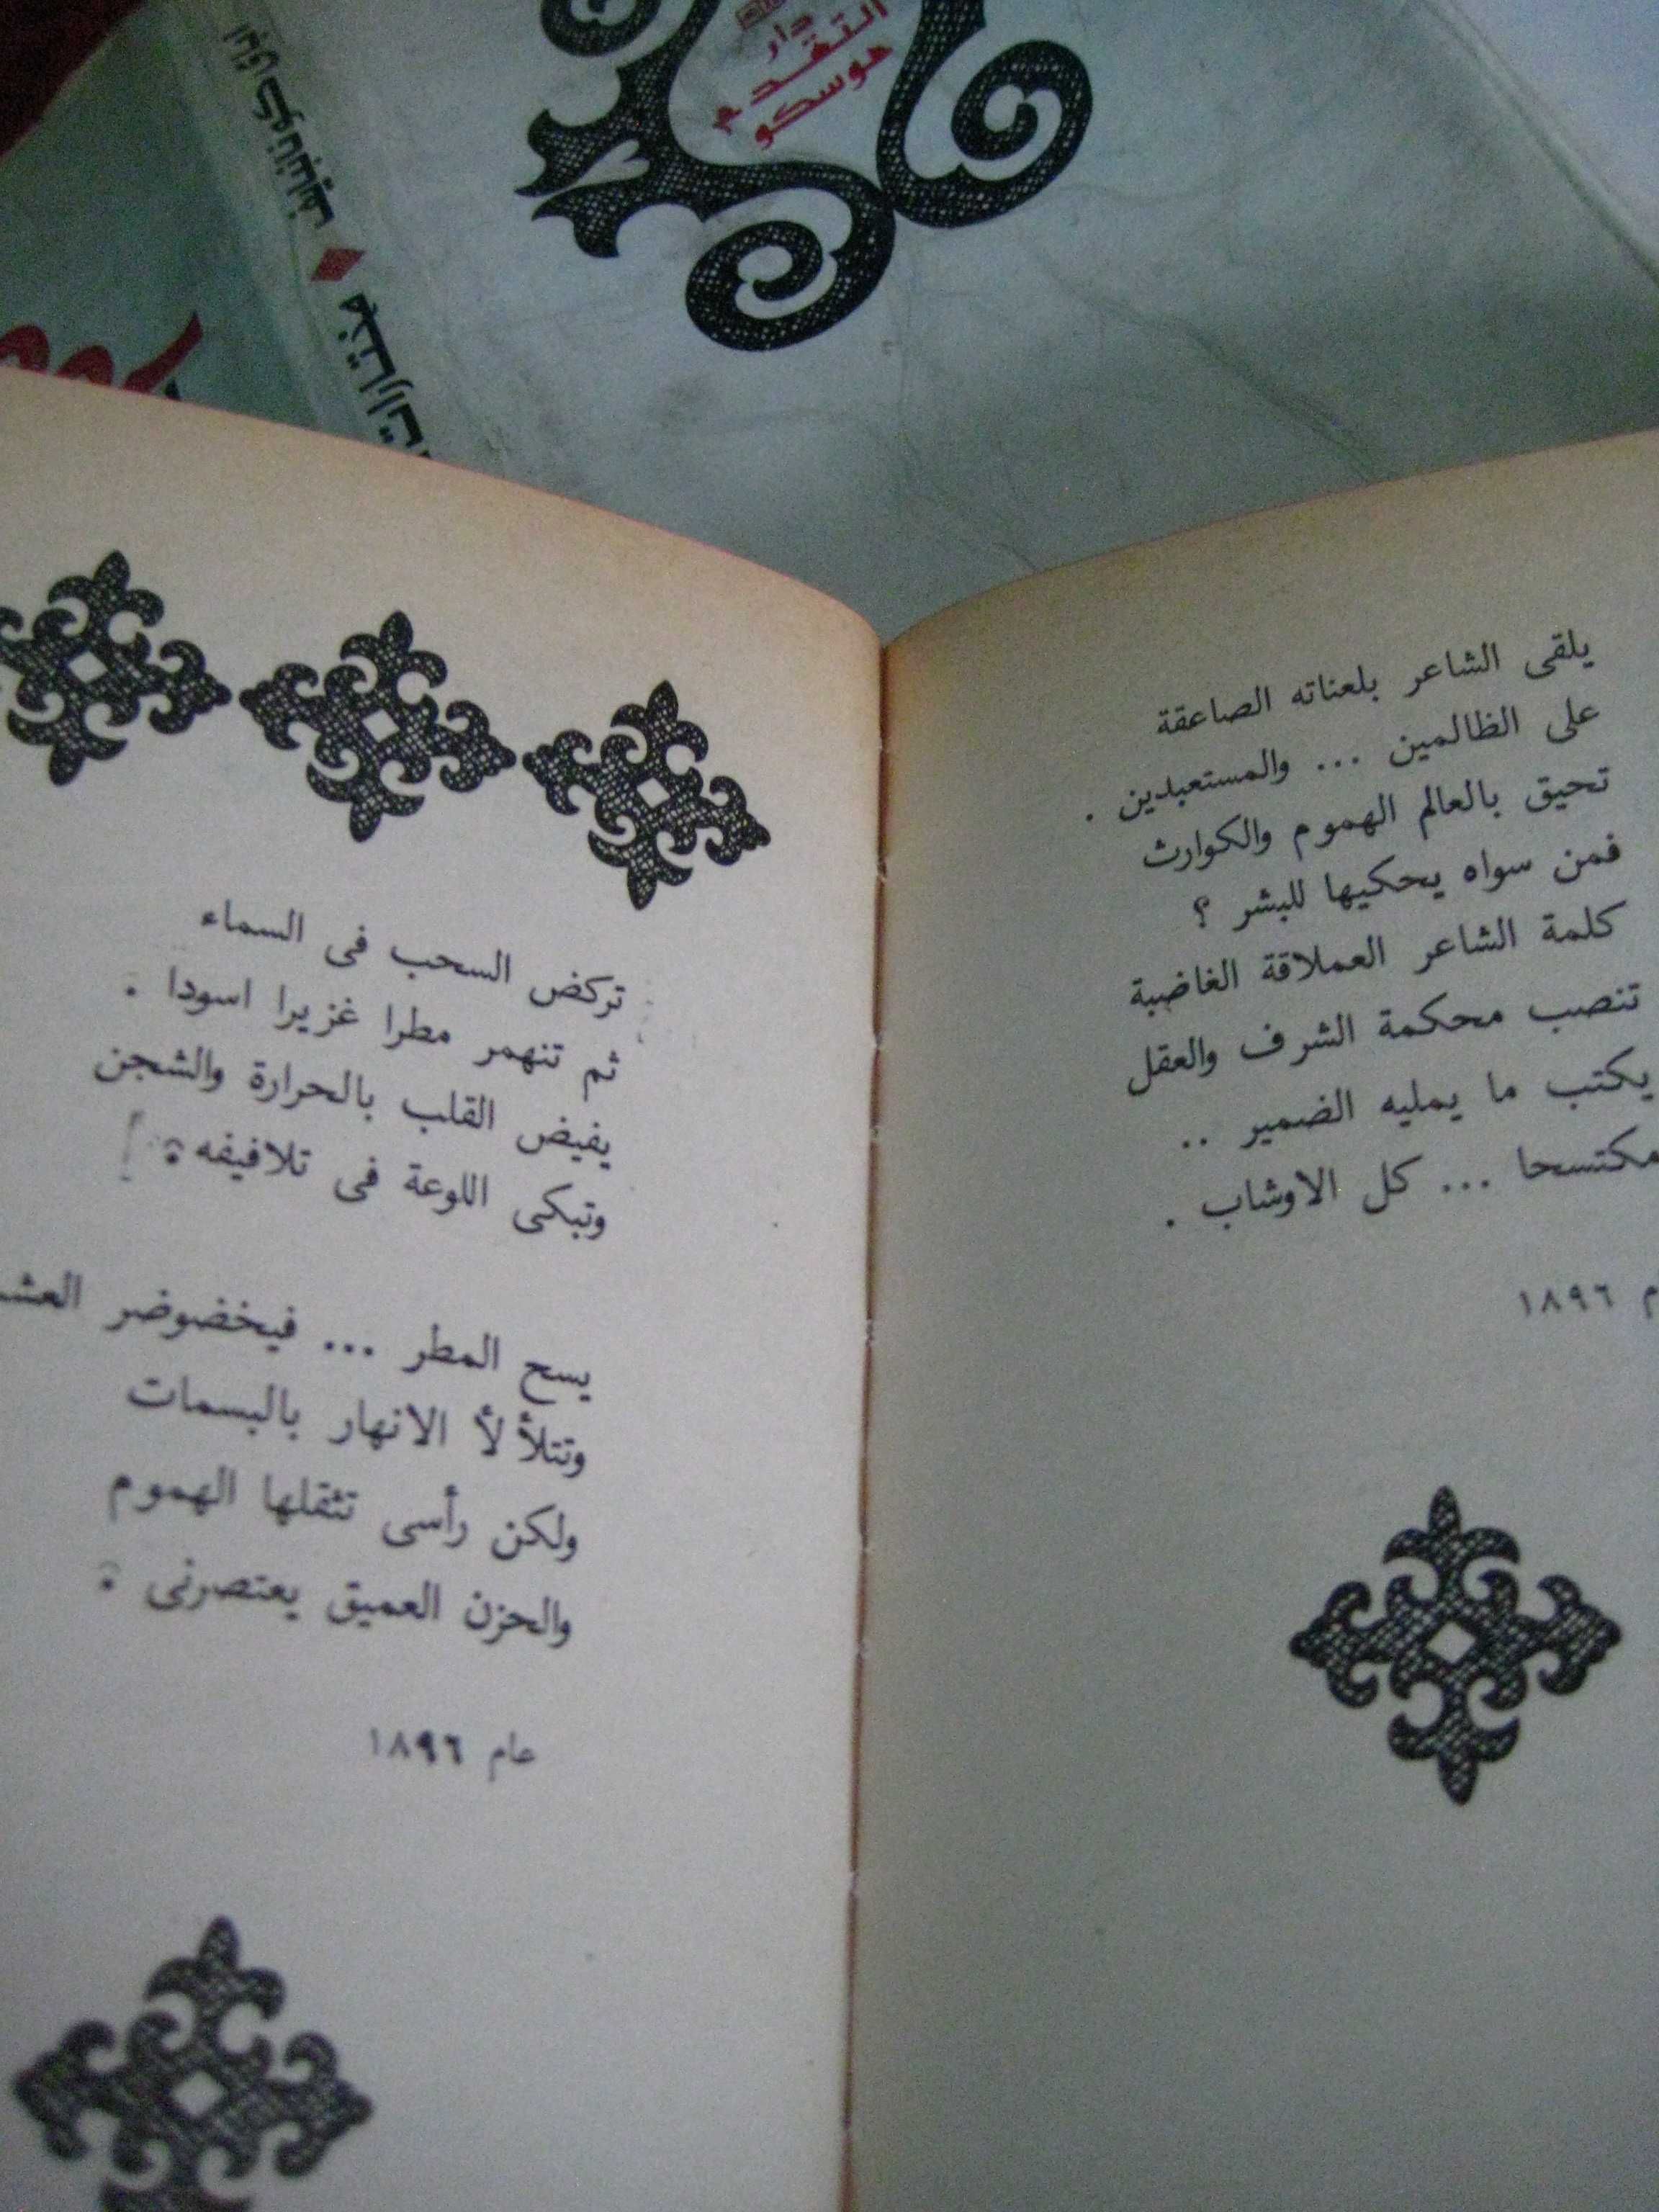 دار
التقدم
موسكو
مختارات
يلقى الشاعر بلعناته الصاعقة
على الظالمين ... والمستعبدين .
تحيق بالعالم الهموم والكوارث
فمن سواه يحكيها للبشر ؟
كلمة الشاعر العملاقة الغاضبة
تنصب محكمة الشرف والعقل
يكتب ما يمليه الضمير ..
مكتسحا ... كل الاوشاب .
م ١٨٩٦
تركض السحب فى السماء
ثم تنهمر مطرا غزيرا اسودا .
يفيض القلب بالحرارة والشجن
وتبكى اللوعة فى تلافيفه . !
يسح المطر ... فيخضوضر العشـ
وتتلألأ الانهار بالبسمات
ولكن رأسى تثقلها الهموم
والحزن العميق يعتصرنى .
عام ١٨٩٦